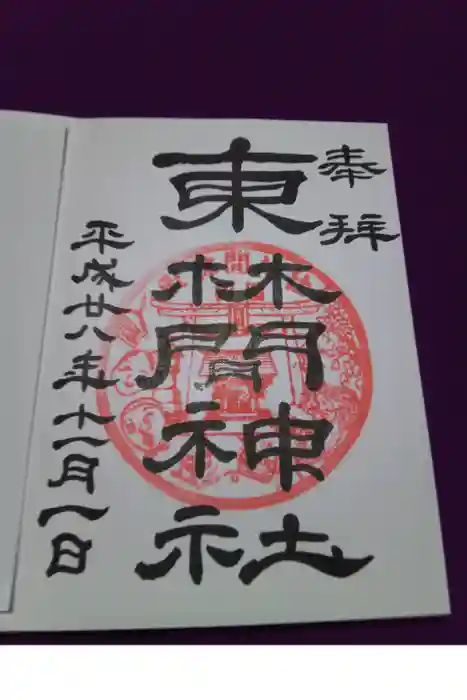 奉拜
東林間神社
平成廿八年十一月一日